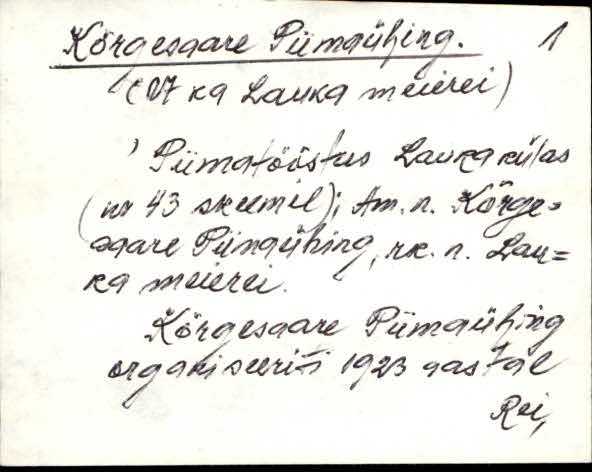 Kõrgesaare Piimaühing. 1
(vt ka Lauka meierei)
Piimatööstus Lauka külas
(nr 43 skeemil); Am. n. Kõrge=
saare Piimaühing, rk. n. Lau=
ka meierei.
Kõrgesaare Piimaühing
organiseeriti 1923 aastal
Rei,